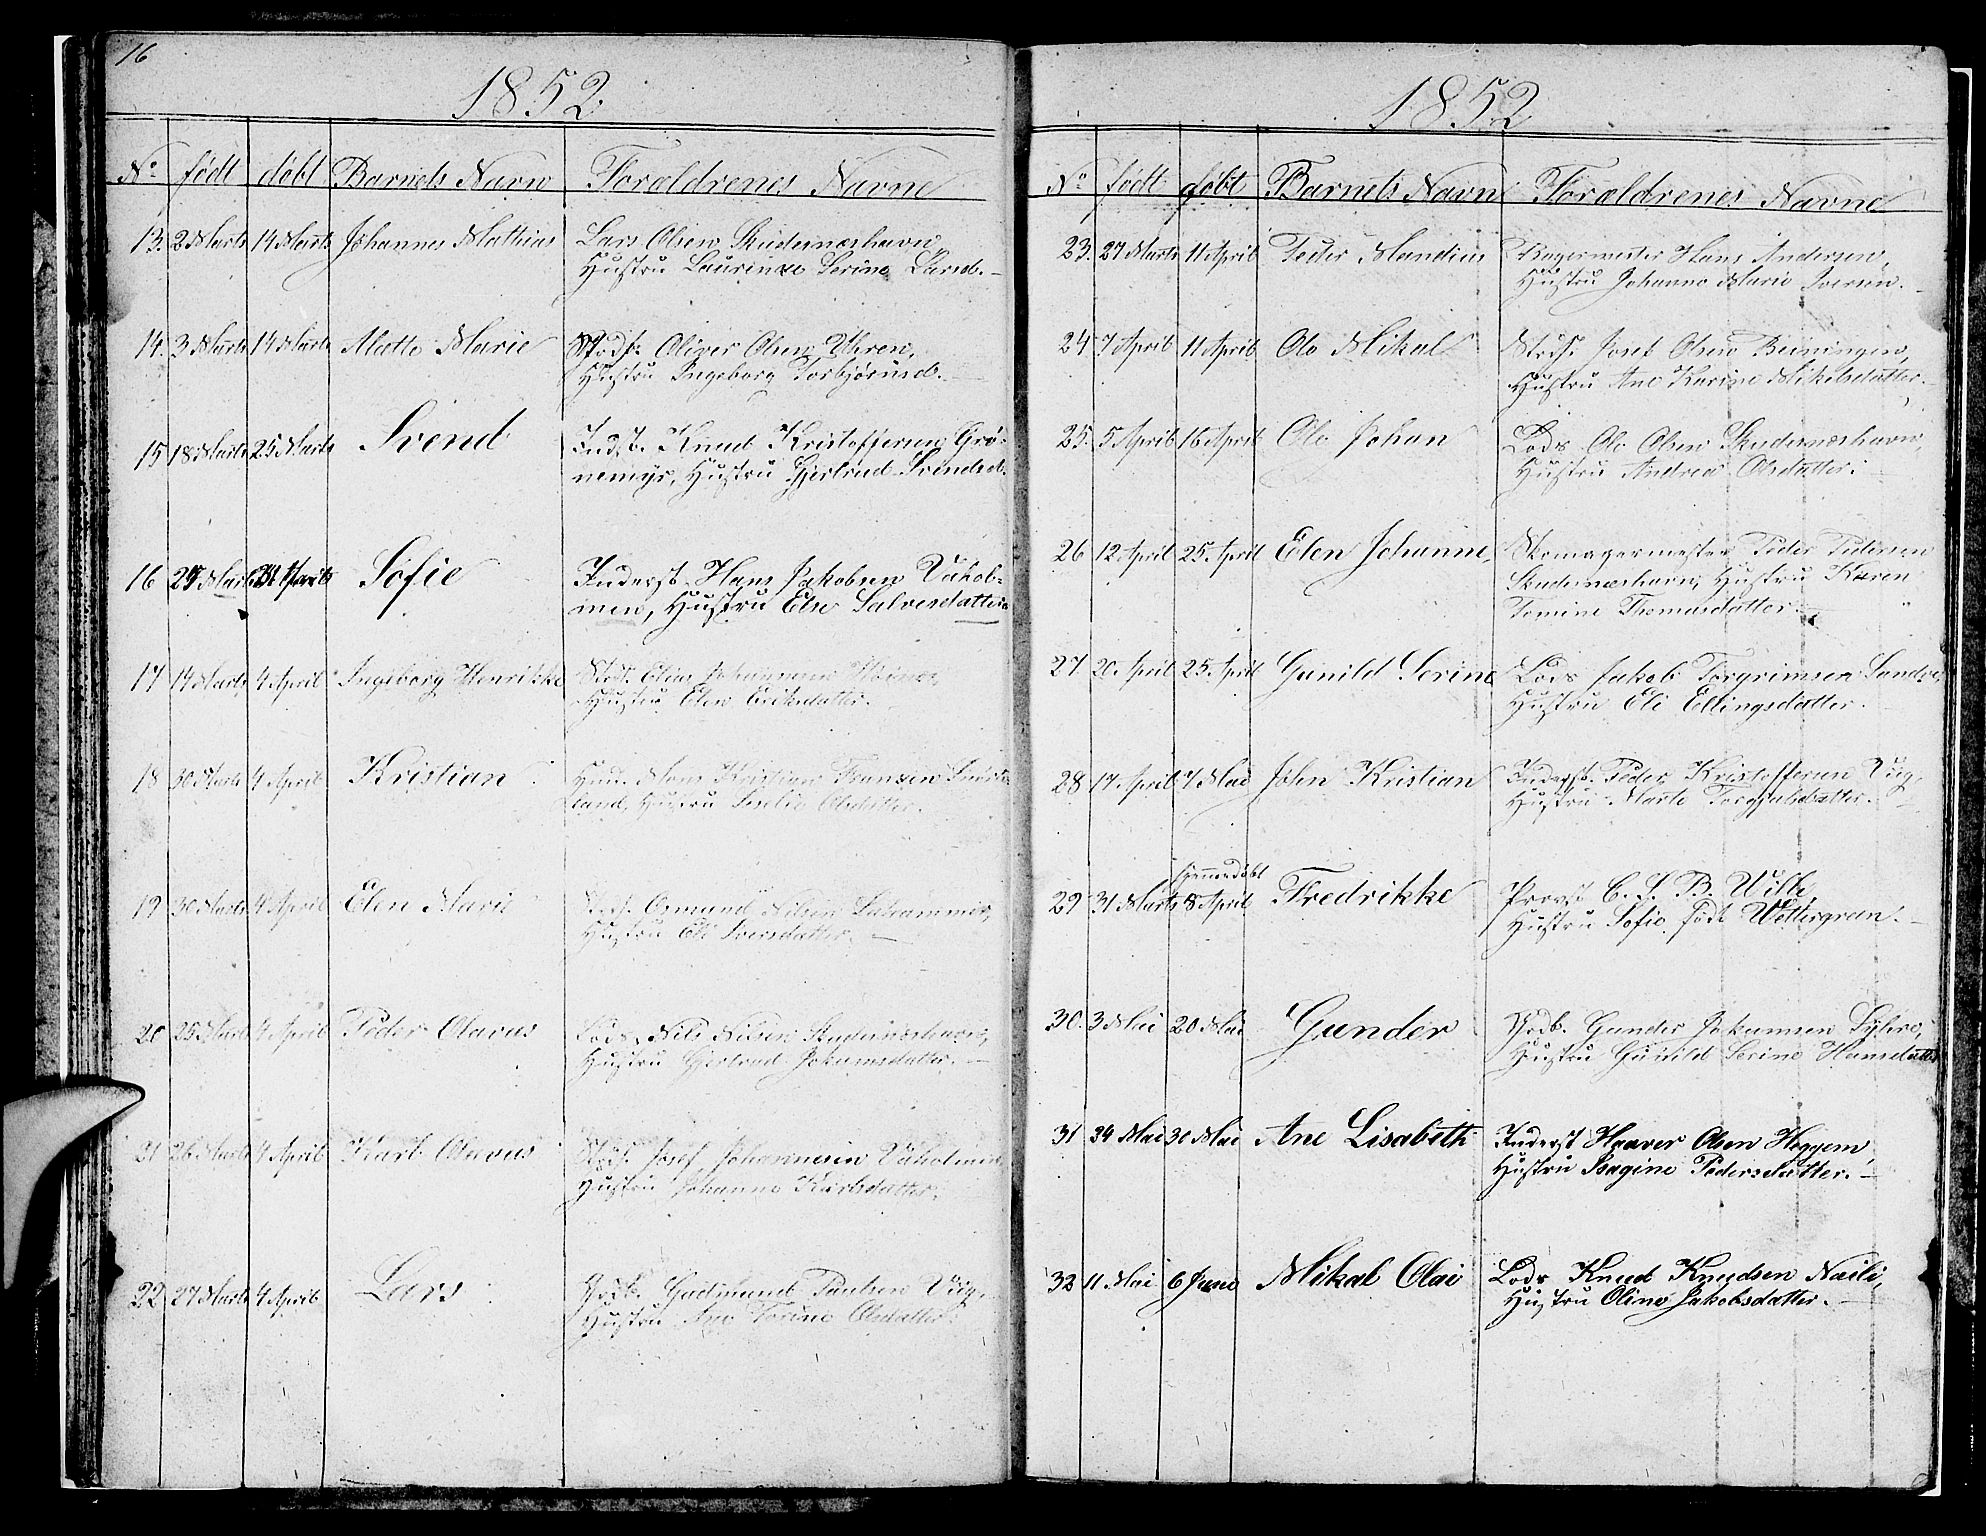 16
1852
No født døbt Barnets Navn Forældrenes Navne
13. 2 Marts 14 Marts Johannes Mathias Lars Olsen Skudernæshavn,
Hustru Laurinze Serine Larsd.
14. 3 Marts 14 Marts Mette Marie Strds. Oliver Olsen Uhren,
Hustru Ingeborg Torbjørnsd.
15 18 Marts 25 Marts Svend Indst. Knud Kristoffersen Grø-
nemyr, Hustru Gjertrud Svendsd.
16 Marts April Sofie Inderst. Hans Jakobsen Vaahol-
men, Hustru Else Salvesdatter
17 14 Marts 4 April Ingeborg Henrikke Strds. Elias Johannesen
Hustru Elen Eriksdatter.
18 30 Marts 4 April Kristian Huusm. Hans Kristian Fransen
land, Hustru Olsdatter.
19 30 Marts 4 April Elen Marie Strds. Osmund Nilsen Lahammer,
Hustru Eli Iversdatter.
20 25 Marts 4 April Peder Olavus Lods Nils Nilsen Skudernæshavn,
Hustru Gjertrud Johannsdatter.
21 26 Marts 4 April Karl Olavus Strds. Josef Johannesen Vaaholmen,
Hustru Johanne Karlsdatter.
22 27 Marts 4 April Lars Gudmund Paulsen Viig,
Hustru Ane Torine Olsdatter.
1852
No født døbt Barnets Navn Forældrenes Navne
23. 27 Marts 11 April Peder Mandius Bagermester Hans Andersen,
Hustru Johanne Marie Iversen.
24 7 April 11 April Ole Mikal Strds. Josef Olsen Beiningen,
Hustru Ane Karine Mikelsdatter.
25. 5 April 16 April Ole Johan Lods Ole Olsen Skudernæshavn,
Hustru Andrea Olsdatter.
26 12 April 25. April Elen Johanne, Skomagermester Peder Pedersen
Skudernæshavn, Hustru Karen
Tomine Thomasdatter.
27 20. April 25. April Gunild Serine Lods Jakob Torgrimsen Sandve,
Hustru Eli Ellingsdatter.
28 17 April 7 Mai John Kristian Inderst. Peder Kristoffersen Viig,
Hustru Marte Torgjulsdatter.
hjemmedøbt
29 31 Marts 8 April Fredrikke Provst C. L. B. Wille,
Hustru Sofie, født Wettergreen.
30. 3 Mai 20 Mai Gunder Gunder Johannsen Syhre,
Hustru Gunild Serine Hansdatter
31 24 Mai 30 Mai Ane Lisabeth Inderst Haaver Olsen Heggem,
Hustru Aagine Pedersdatter.
32 11 Mai 6 June Mikal Olai Lods Knud Knudsen Naili,
Hustru Oline Jakobsdatter.